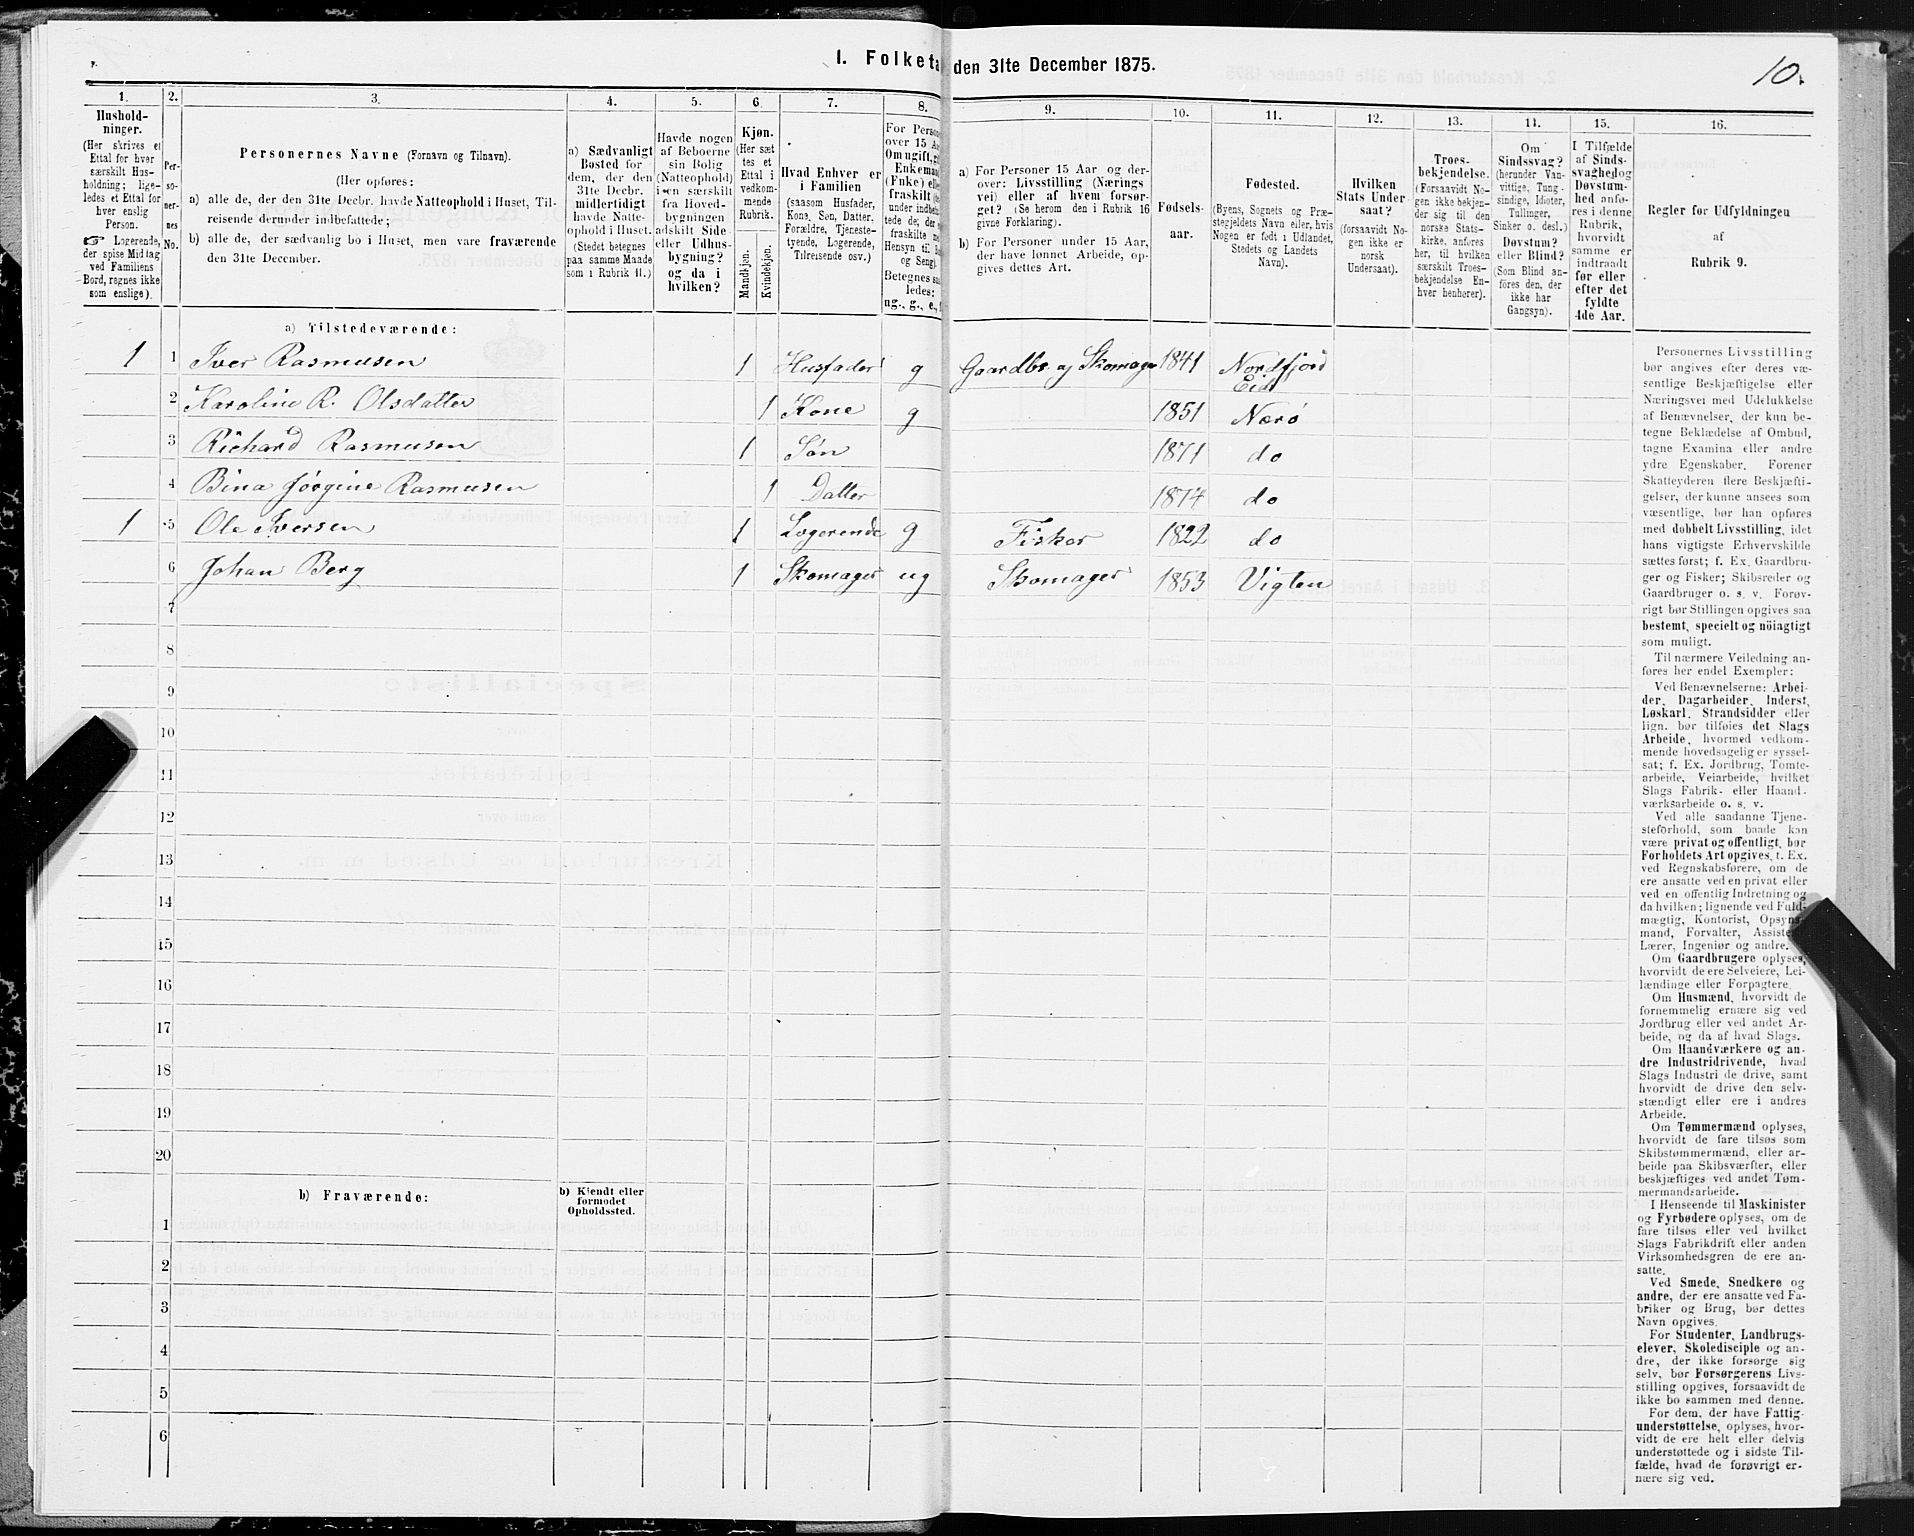 I. Folketa den 31te December 1875.
10.
1.
Hushold-
ninger.
(Her skrives et
Ettal for hver
særskilt Hus-
holdning; lige-
ledes et Ettal for
hver enslig
Person.
☞ Logerende,
der spise Middag
ved Familiens
Bord, regnes ikke
som enslige).
2.
Per-
sone-
rnes
No.
3.
Personernes Navne (Fornavn og Tilnavn).
(Her opføres:
a) alle de, der den 31te Decbr. havde Natteophold i Huset, Til-
reisende derunder indbefattede;
b) alle de, der sædvanlig bo i Huset, men vare fraværende
den 31te December.
4.
a) Sædvanligt
Bosted for
dem, der den
31te Decbr.
midlertidigt
havde Natte-
ophold i Huset.
(Stedet betegnes
paa samme Maade
som i Rubrik 11.)
5.
Havde nogen
af Beboerne
sin Bolig
(Natteophold)
i en særskilt
fra Hoved-
bygningen
adskilt Side-
eller Udhus-
bygning?
og da i
hvilken?
6.
Kjøn.
(Her sæt
tes et
Ettal i
vedkom-
mende
Rubrik.
Mandkjøn.
Kvindekjøn.
7.
Hvad Enhver er
i Familien
(saasom Husfader,
Kone, Søn, Datter,
Forældre, Tjeneste-
tyende, Logerende,
Tilreisende osv.)
8.
For Person
over 15 Aa
Om ugift, gi
Enkeman
(Enke) elle
fraskilt
under indbe
tede de, der
fraskilte
Hensyn til B
og Seng).
Betegnes saa
ledes:
ug., g., e.,
9.
a) For Personer 15 Aar og der-
over: Livsstilling (Nærings
vei) eller af hvem forsør-
get? (Se herom den i Rubrik 16
givne Forklaring).
b) For Personer under 15 Aar,
der have lønnet Arbeide, op-
gives dettes Art.
10.
Fødsels-
aar.
11.
Fødested.
(Byens, Sognets og Præ-
stegjeldets Navn eller, hvis
Nogen er født i Udlandet,
Stedets og Landets
Navn).
12.
Hvilken
Stats Under-
saat?
(forsaavidt No-
gen ikke er
norsk
Undersaat).
13.
Troes-
bekjendelse.
(Forsaavidt No-
gen ikke bekjen-
der sig til den
norske Stats-
kirke, anføres
her, til hvilken
særskilt Troes-
bekjendelse En-
hver henhører).
14.
Om
Sindssvag?
(herunder Van-
vittige, Tung-
sindige, Idioter,
Tullinger,
Sinker o. desl.)
Døvstum?
eller Blind?
(Som Blind an-
føres den, der
ikke har
Gangsyn).
15.
I Tilfælde
af Sinds-
svaghed og
Døvstum-
hed anfø-
res i denne
Rubrik,
hvorvidt
samme er
indtraadt
før eller
efter det
fyldte
4de Aar.
16.
Regler for Udfyldningen
af
Rubrik 9.
a) Tilstedeværende:
1 1 Iver Rasmusen 1 Husfader g Gaardbr og Skomager 1841 Nordfjord
Eid
2 Karoline R. Olsdatter 1 Kone g 1851 Nærø
3 Richard Rasmusen 1 Søn 1871 do
4 Bina Jørgine Rasmusen 1 Datter 1874 do
1 5 Ole Iversen 1 Logerende g Fisker 1822 do
6 Johan Berg 1 Skomager ug Skomager 1853 Vigten
7
8
9
10
11
12
13
14
15
16
17
18
19
20
b) Fraværende:
b) Kjendt eller
formodet
Opholdssted.
1
2
3
4
5
6
Personernes Livsstilling
bør angives efter deres væ-
sentlige Beskjæftigelse eller
Næringsvei med Udelukkelse
af Benævnelser, der kun be-
tegne Beklædelse af Ombud,
tagne Examina eller andre
ydre Egenskaber. Forener
Skatteyderen flere Beskjæfti-
gelser, der kunne ansees som
væsentlige, bør han opføres
med dobbelt Livsstilling, idet
hans vigtigste Erhvervskilde
sættes først; f. Ex. Gaardbru-
ger og Fisker; Skibsreder og
Gaardbruger o. s. v. Forøv-
rigt bør Stillingen opgives saa
bestemt, specielt og nöiagtigt
som muligt.
Til nærmere Veiledning an-
føres her endel Exempler:
Ved Benævnelserne: Arbei-
der, Dagarbeider, Inderst,
Løskarl, Strandsidder eller
lign. bør tilføies det Slags
Arbeide, hvormed vedkom-
mende hovedsagelig er syssel-
sat; f. Ex. Jordbrug, Tomte-
arbeide, Veiarbeide, hvilket
Slags Fabrik- eller Haand-
værksarbeide o. s. v.
Ved alle saadanne Tjene-
steforhold, som baade kan
være privat og offentligt, bør
Forholdets Art opgives, f. Ex.
ved Regnskabsførere, om de
ere ansatte ved en privat eller
ved en offentlig Indretning og
da hvilken; lignende ved Fuld-
mægtig, Kontorist, Opsyns-
mand, Forvalter, Assistent,
Lærer, Ingeniør og andre.
Om Gaardbrugere oplyses,
hvorvidt de ere Selveiere, Lei-
lændinge eller Forpagtere.
Om Husmænd, hvorvidt de
fornemmelig ernære sig ved
Jordbrug eller ved andet Ar-
beide, og da af hvad Slags.
Om Haandværkere og an-
dre Industridrivende, hvad
Slags Industri de drive, samt
hvorvidt de drive den selv-
stændigt eller ere i andres
Arbeide.
Om Tømmermænd oplyses,
hvorvidt de fare tilsøs som
Skibstømmermænd, eller ar-
beide paa Skibsværfter, eller
beskjæftiges ved andet Tøm-
mermandsarbeide.
I Henseende til Maskinister
og Fyrbødere oplyses, om de
fare tilsøs eller ved hvilket
Slags Fabrikdrift eller anden
Virksomhedsgren de ere an-
satte.
Ved Smede, Snedkere og
andre, der ere ansatte ved Fa-
briker og Brug, bør dettes
Navn opgives.
For Studenter, Landbrugs-
elever, Skoledisciple og an-
dre, der ikke forsørge sig
selv, bør Forsørgerens Livs-
stilling opgives, forsaavidt de
ikke bo sammen med denne.
For dem, der have Fattig-
understøttelse, oplyses, hvor-
vidt de ere helt eller delvis
understøttede og i sidste Til-
fælde, hvad de forøvrigt er-
nære sig ved.